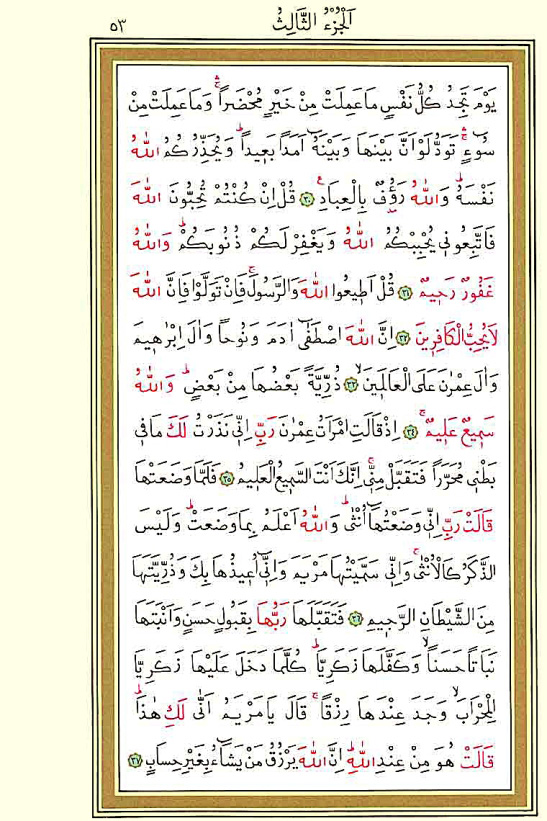 اَلْجُزْءُ الثَّالِثُ
٥٣
يَوْمَ تَجِدُ كُلُّ نَفْسٍ مَا عَمِلَتْ مِنْ خَيْرٍ مُحْضَراًۚۛ وَمَا عَمِلَتْ مِنْ
سُٓوءٍۚۛ تَوَدُّ لَوْ اَنَّ بَيْنَهَا وَبَيْنَهُٓ اَمَداً بَع۪يداًۜ وَيُحَذِّرُكُمُ اللّٰهُ
نَفْسَهُۜ وَاللّٰهُ رَؤُ۫فٌ بِالْعِبَادِ۟ ﴿٣٠﴾ قُلْ اِنْ كُنْتُمْ تُحِبُّونَ اللّٰهَ
فَاتَّبِعُون۪ي يُحْبِبْكُمُ اللّٰهُ وَيَغْفِرْ لَكُمْ ذُنُوبَكُمْۜ وَاللّٰهُ
غَفُورٌ رَح۪يمٌ ﴿٣١﴾ قُلْ اَط۪يعُوا اللّٰهَ وَالرَّسُولَۚ فَاِنْ تَوَلَّوْا فَاِنَّ اللّٰهَ
لَا يُحِبُّ الْكَافِر۪ينَ ﴿٣٢﴾ اِنَّ اللّٰهَ اصْطَفٰٓى اٰدَمَ وَنُوحاً وَاٰلَ اِبْرٰه۪يمَ
وَاٰلَ عِمْرٰنَ عَلَى الْعَالَم۪ينَۙ ﴿٣٣﴾ ذُرِّيَّةً بَعْضُهَا مِنْ بَعْضٍۜ وَاللّٰهُ
سَم۪يعٌ عَل۪يمٌۚ ﴿٣٤﴾ اِذْ قَالَتِ امْرَاَتُ عِمْرٰنَ رَبِّ اِنّ۪ي نَذَرْتُ لَكَ مَا ف۪ي
بَطْن۪ي مُحَرَّراً فَتَقَبَّلْ مِنّ۪يۚ اِنَّكَ اَنْتَ السَّم۪يعُ الْعَل۪يمُ ﴿٣٥﴾ فَلَمَّا وَضَعَتْهَا
قَالَتْ رَبِّ اِنّ۪ي وَضَعْتُهَٓا اُنْثٰىۜ وَاللّٰهُ اَعْلَمُ بِمَا وَضَعَتْۜ وَلَيْسَ
الذَّكَرُ كَالْاُنْثٰىۚ وَاِنّ۪ي سَمَّيْتُهَا مَرْيَمَ وَاِنّ۪ٓي اُع۪يذُهَا بِكَ وَذُرِّيَّتَهَا
مِنَ الشَّيْطَانِ الرَّج۪يمِ ﴿٣٦﴾ فَتَقَبَّلَهَا رَبُّهَا بِقَبُولٍ حَسَنٍ وَاَنْبَتَهَا
نَبَاتاً حَسَناًۙ وَكَفَّلَهَا زَكَرِيَّاۜ كُلَّمَا دَخَلَ عَلَيْهَا زَكَرِيَّا
الْمِحْرَابَۙ وَجَدَ عِنْدَهَا رِزْقاًۚ قَالَ يَا مَرْيَمُ اَنّٰى لَكِ هٰذَاۜ
قَالَتْ هُوَ مِنْ عِنْدِ اللّٰهِۜ اِنَّ اللّٰهَ يَرْزُقُ مَنْ يَشَٓاءُ بِغَيْرِ حِسَابٍ ﴿٣٧﴾